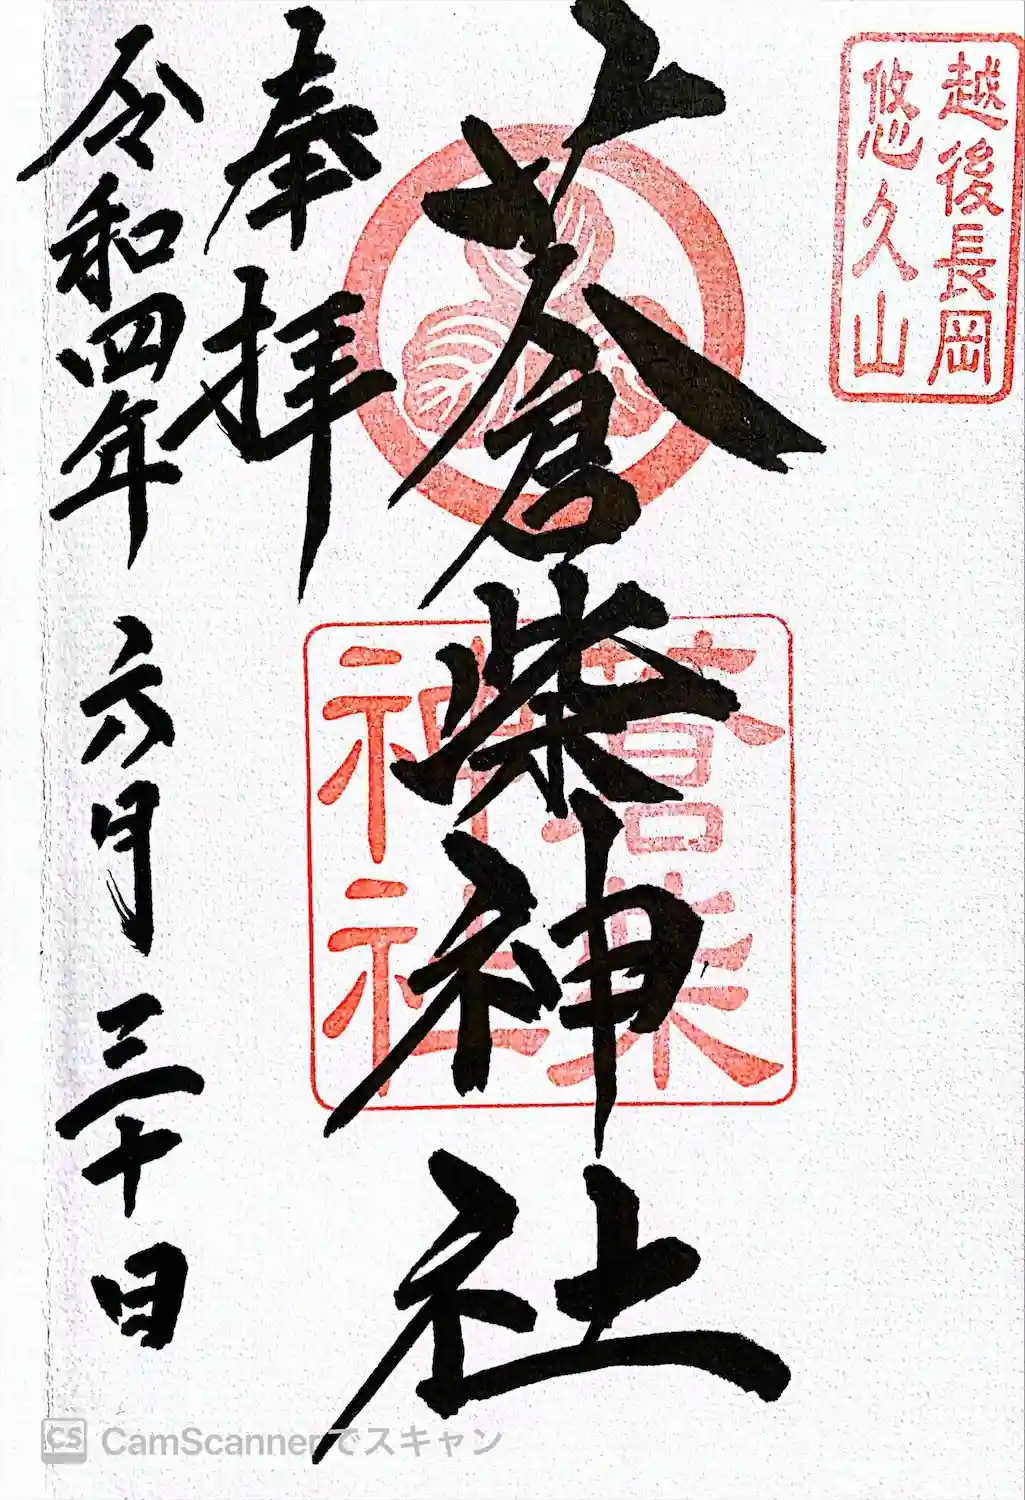 越後長岡
悠久山
蒼柴神社
蒼柴
神社
奉拝
令和四年 六月 三十日
CS CamScannerでスキャン